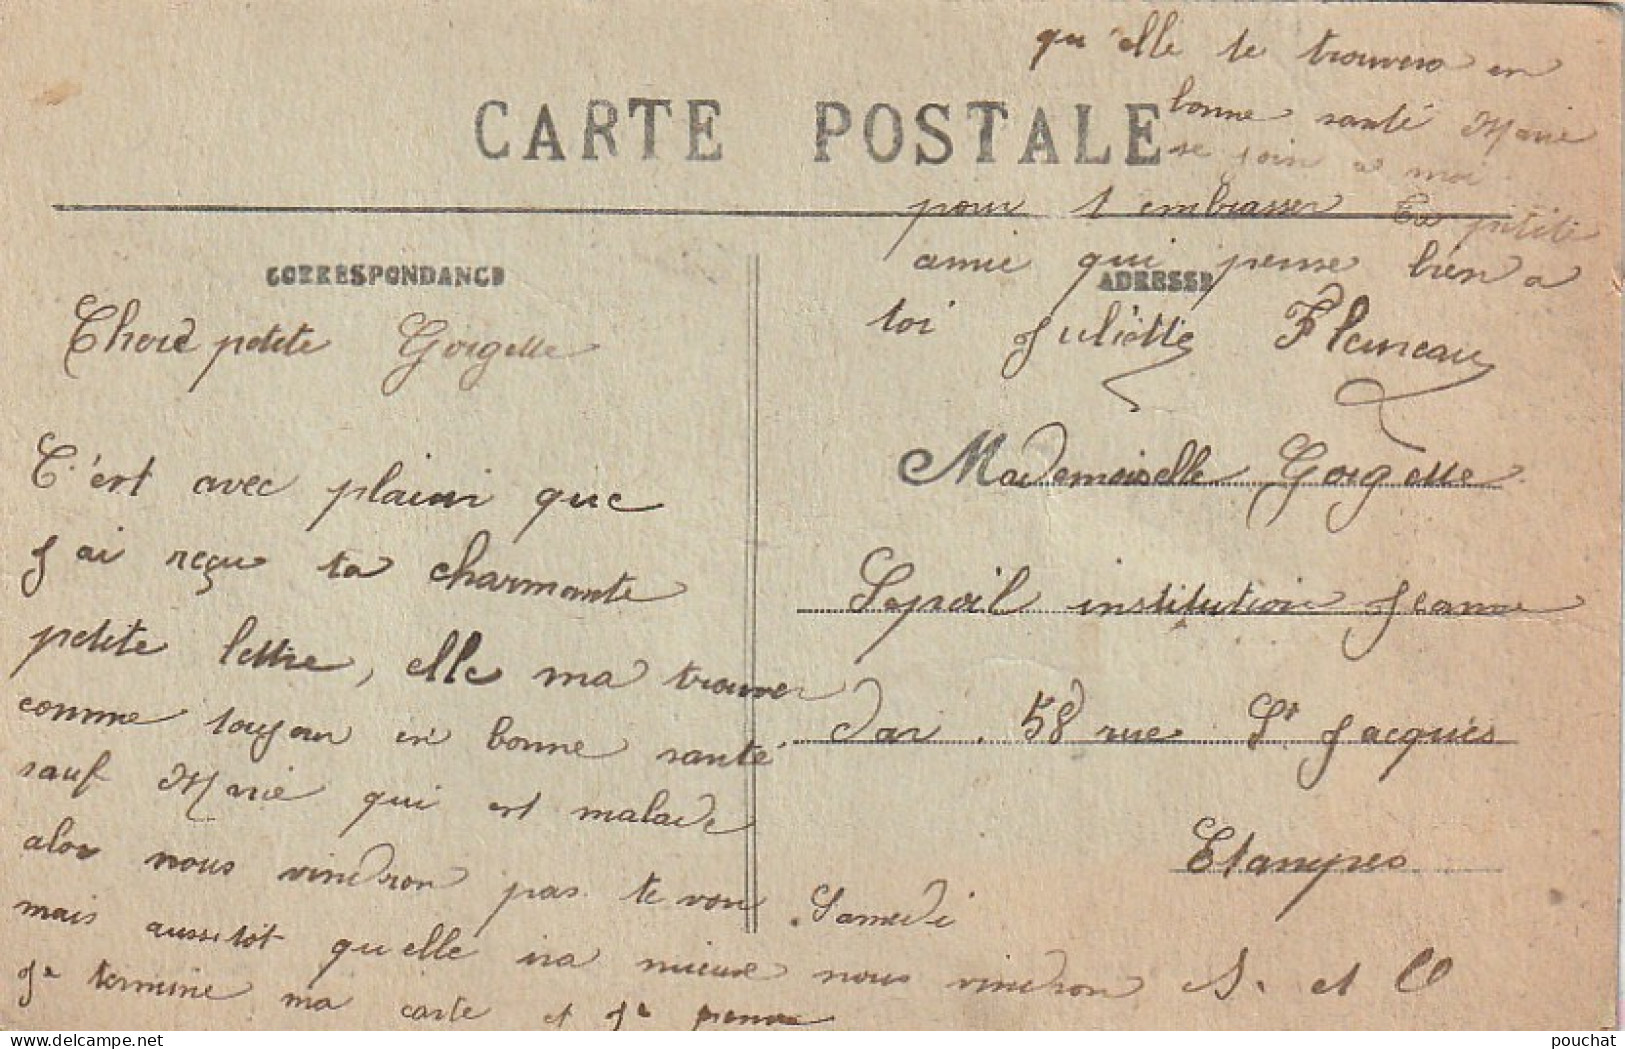 CARTE POSTALE
CORRESPONDANCE
Chere petite Gorgette
C'est avec plaisir que
j'ai reçu ta charmante
petite lettre, elle ma trouver
comme toujour en bonne santé
sauf Marie qui est malade
alor nous vindron pas te voir Samedi
mais aussitôt qu'elle ira mieux nous vindron
Je termine ma carte et je pense
qu'elle te trouvera en
bonne santé Marie
se join a moi
pour t embrasser Ta petite
amie qui pense bien a
toi Juliette Fleureau
ADRESSE
Mademoiselle Gorgette
Lepoil institution Jeanne
Dar. 58 rue St Jacques
Etampes
S. et O
pouchat